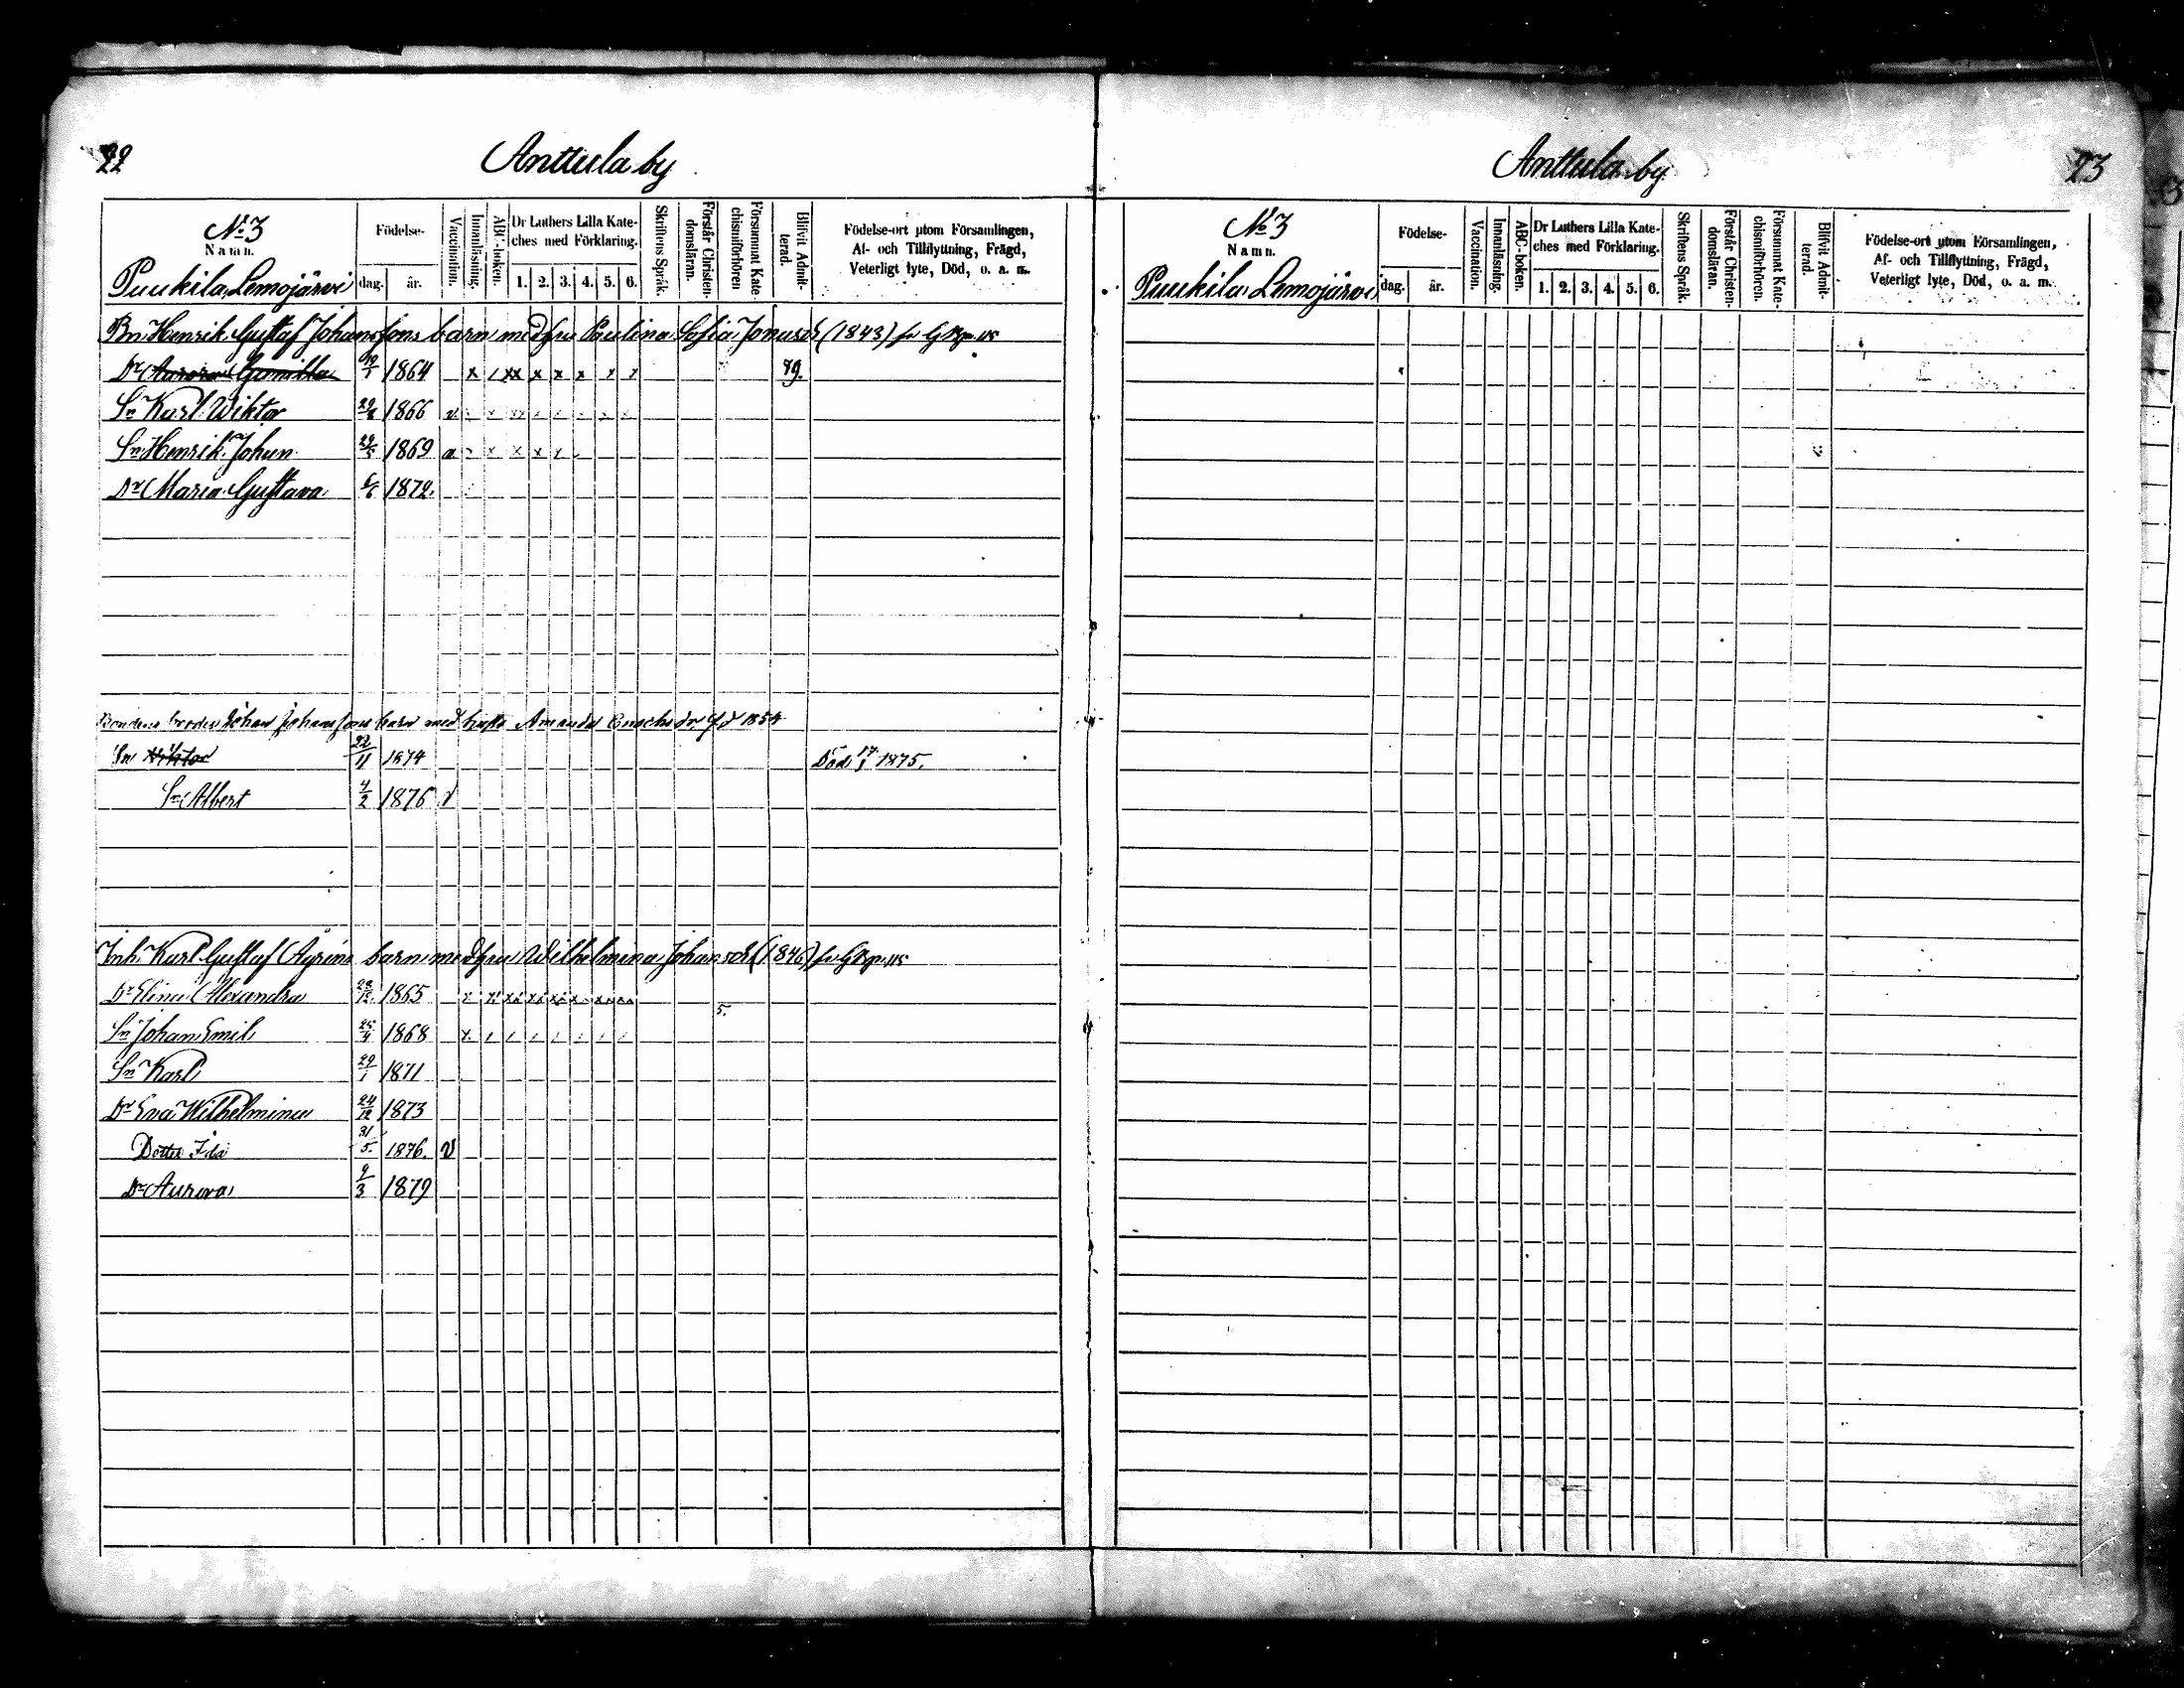 22
Anttula by
No 3
Namn.
Puukila, Lemojärvi
Födelse-
dag. år.
Vaccination.
Innanläsning.
ABC-boken.
Dr Luthers Lilla Kate-
ches med Förklaring.
1. 2. 3. 4. 5. 6.
Skriftens Språk.
Förstår Christen-
domsläran.
Försummat Kate-
chismiförhören
Blifvit Admit-
terad.
Födelse-ort utom Församlingen,
Af- och Tillflyttning, Frägd,
Veterligt lyte, Död, o. a. m.
Bn Henrik Gustaf Johanssons barn med hu Paulina Sofia Jonasdr (1843)
Dr Aurora 1864 x / xx x x x x x 79.
Sn Karl Wiktor 1866 v
Sn Henrik Johan 29/5 1869
Dr Maria Gustava 1872.
Bondens broder Johan Johanssons barn med hustr Amanda Enochsdr f. 1854
Sn Wiktor 22/11 1874 Död 17/1 1875.
Sn Albert 4/2 1876 v
Inh. Karl Gustaf barn med hu Wilhelmina Johansdr (1846)
Dr Elina Alexandra 1865
5.
Sn Johan Emil 25/4 1868 x
Sn Karl 29/1 1871
Dr Eva Wilhelmina 24/12 1873
Dotter Ida 31/5. 1876. v
Dr Aurora 9/3 1879
Anttula by
23
No 3
Namn.
Puukila Lemojärvi
Födelse-
dag. år.
Vaccination.
Innanläsning.
ABC-boken.
Dr Luthers Lilla Kate-
ches med Förklaring.
1. 2. 3. 4. 5. 6.
Skriftens Språk.
Förstår Christen-
domsläran.
Försummat Kate-
chismiförhören.
Blifvit Admit-
terad.
Födelse-ort utom Församlingen,
Af- och Tillflyttning, Frägd,
Veterligt lyte, Död, o. a. m.